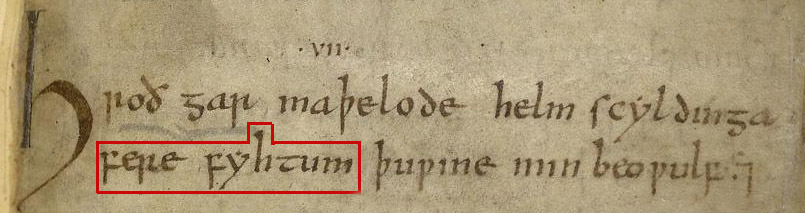 ·VII·
Hroð gar maþelode helm scyldinga
fere fyhtum þuƿine min beoƿulf :⁊